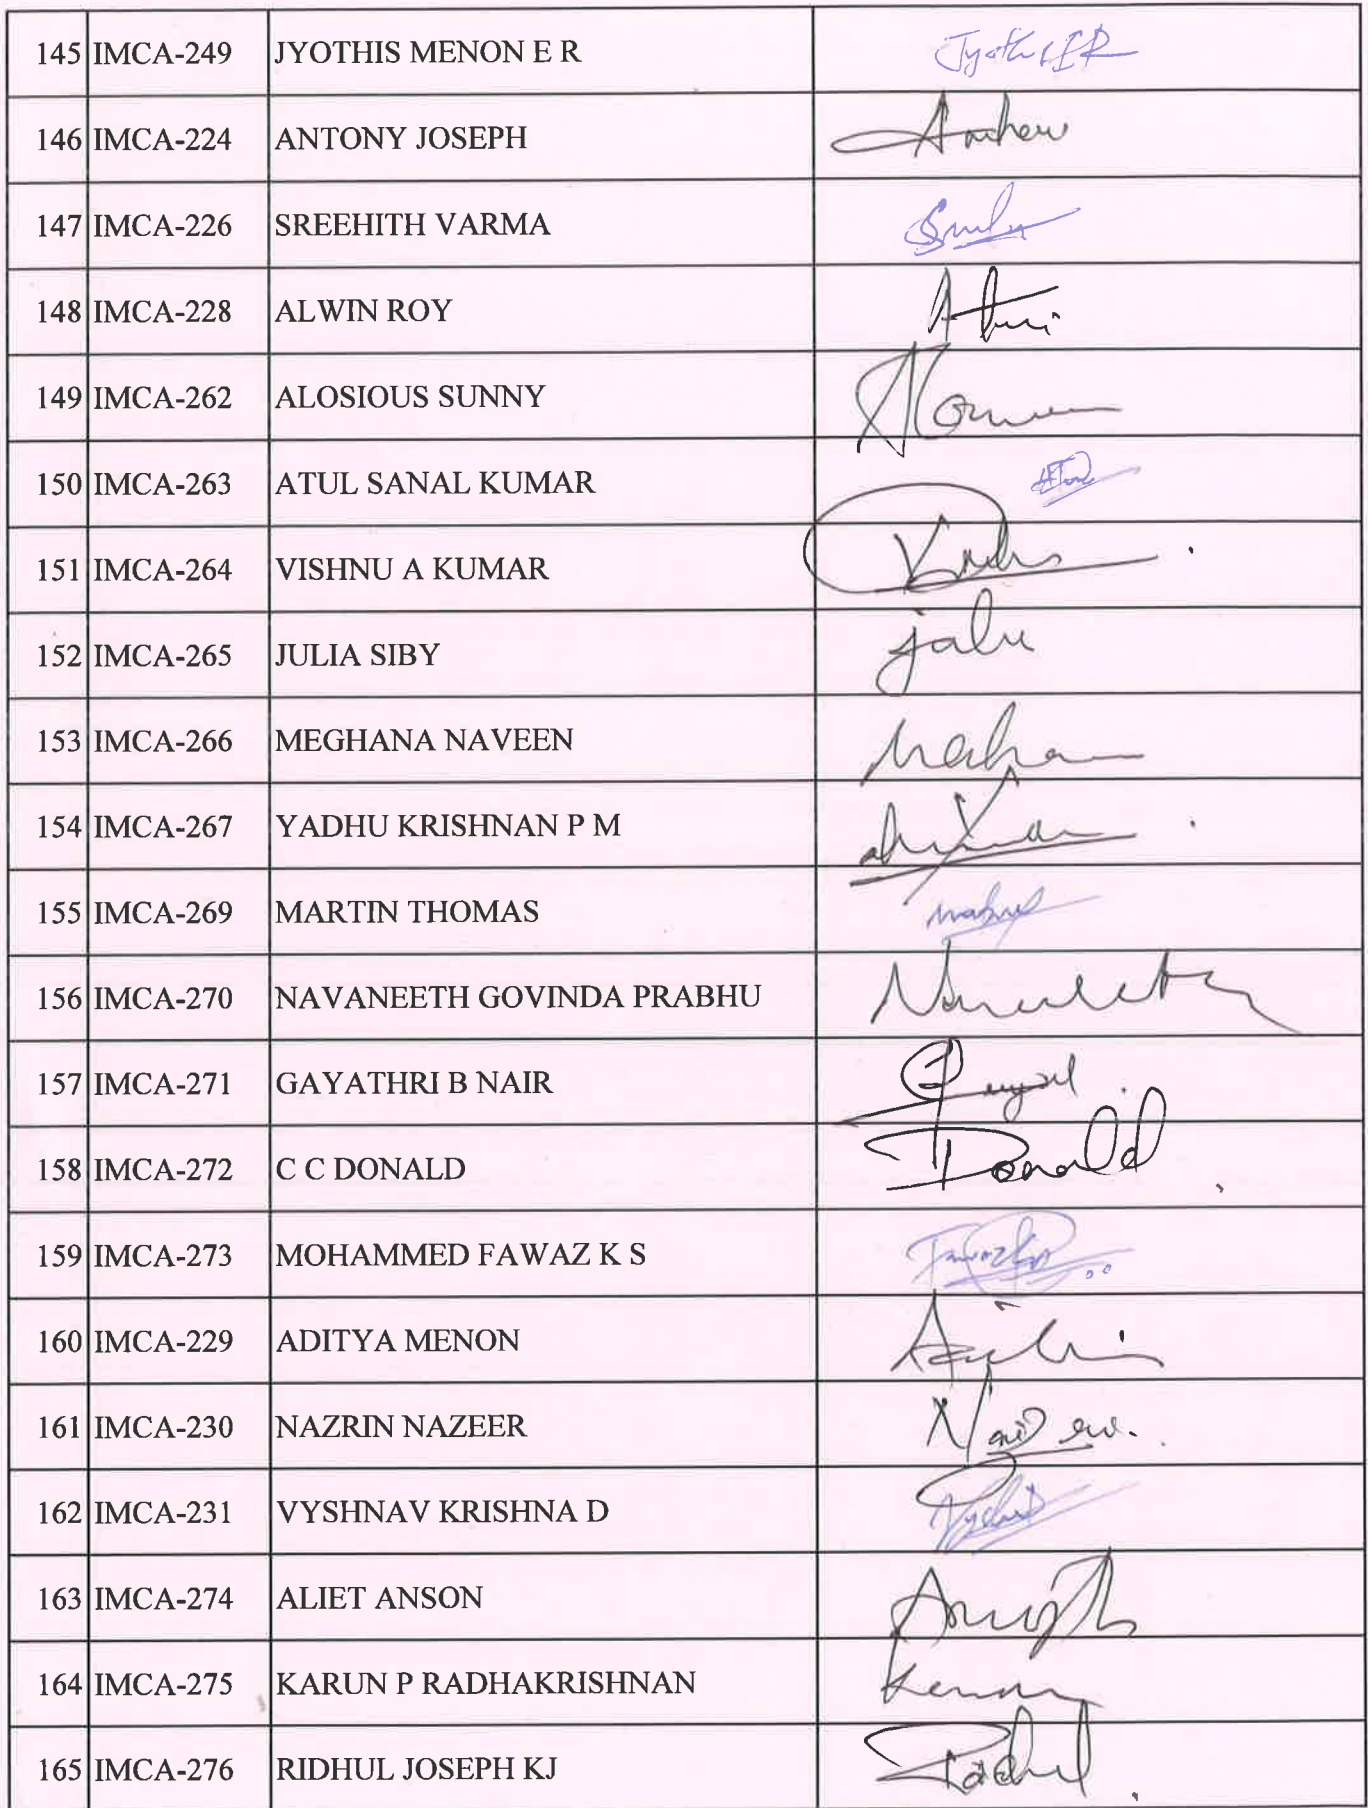 145 IMCA-249 JYOTHIS MENON E R
146 IMCA-224 ANTONY JOSEPH
147 IMCA-226 SREEHITH VARMA
148 IMCA-228 ALWIN ROY
149 IMCA-262 ALOSIOUS SUNNY
150 IMCA-263 ATUL SANAL KUMAR
151 IMCA-264 VISHNU A KUMAR
152 IMCA-265 JULIA SIBY
153 IMCA-266 MEGHANA NAVEEN
154 IMCA-267 YADHU KRISHNAN P M
155 IMCA-269 MARTIN THOMAS
156 IMCA-270 NAVANEETH GOVINDA PRABHU
157 IMCA-271 GAYATHRI B NAIR
158 IMCA-272 C C DONALD Donald
159 IMCA-273 MOHAMMED FAWAZ K S
160 IMCA-229 ADITYA MENON
161 IMCA-230 NAZRIN NAZEER
162 IMCA-231 VYSHNAV KRISHNA D
163 IMCA-274 ALIET ANSON
164 IMCA-275 KARUN P RADHAKRISHNAN
165 IMCA-276 RIDHUL JOSEPH KJ